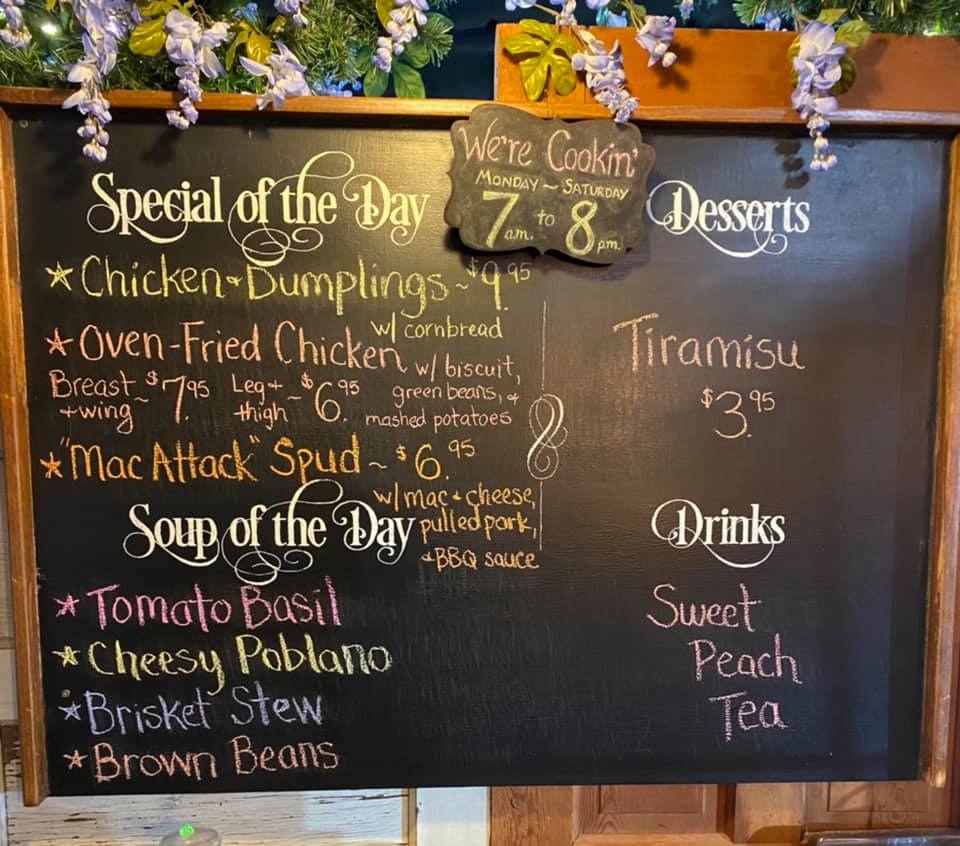 We're Cookin'
Monday ~ Saturday
7 a.m. to 8 p.m.
Special of the Day
* Chicken + Dumplings ~ $9.95
w/ cornbread
* Oven-Fried Chicken w/ biscuit,
green beans, +
mashed potatoes
Breast + wing ~ $7.95 Leg + thigh ~ $6.95
* "Mac Attack" Spud ~ $6.95
w/ mac + cheese,
pulled pork,
+ BBQ sauce
Soup of the Day
* Tomato Basil
* Cheesy Poblano
* Brisket Stew
* Brown Beans
Desserts
Tiramisu
$3.95
Drinks
Sweet
Peach
Tea